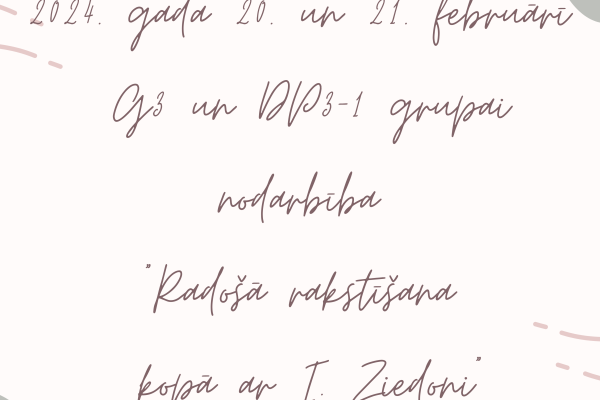 2024. gada 20. un 21. februārī
G3 un DP3-1 grupai
nodarbība
"Radošā rakstīšana
kopā ar I. Ziedoni"